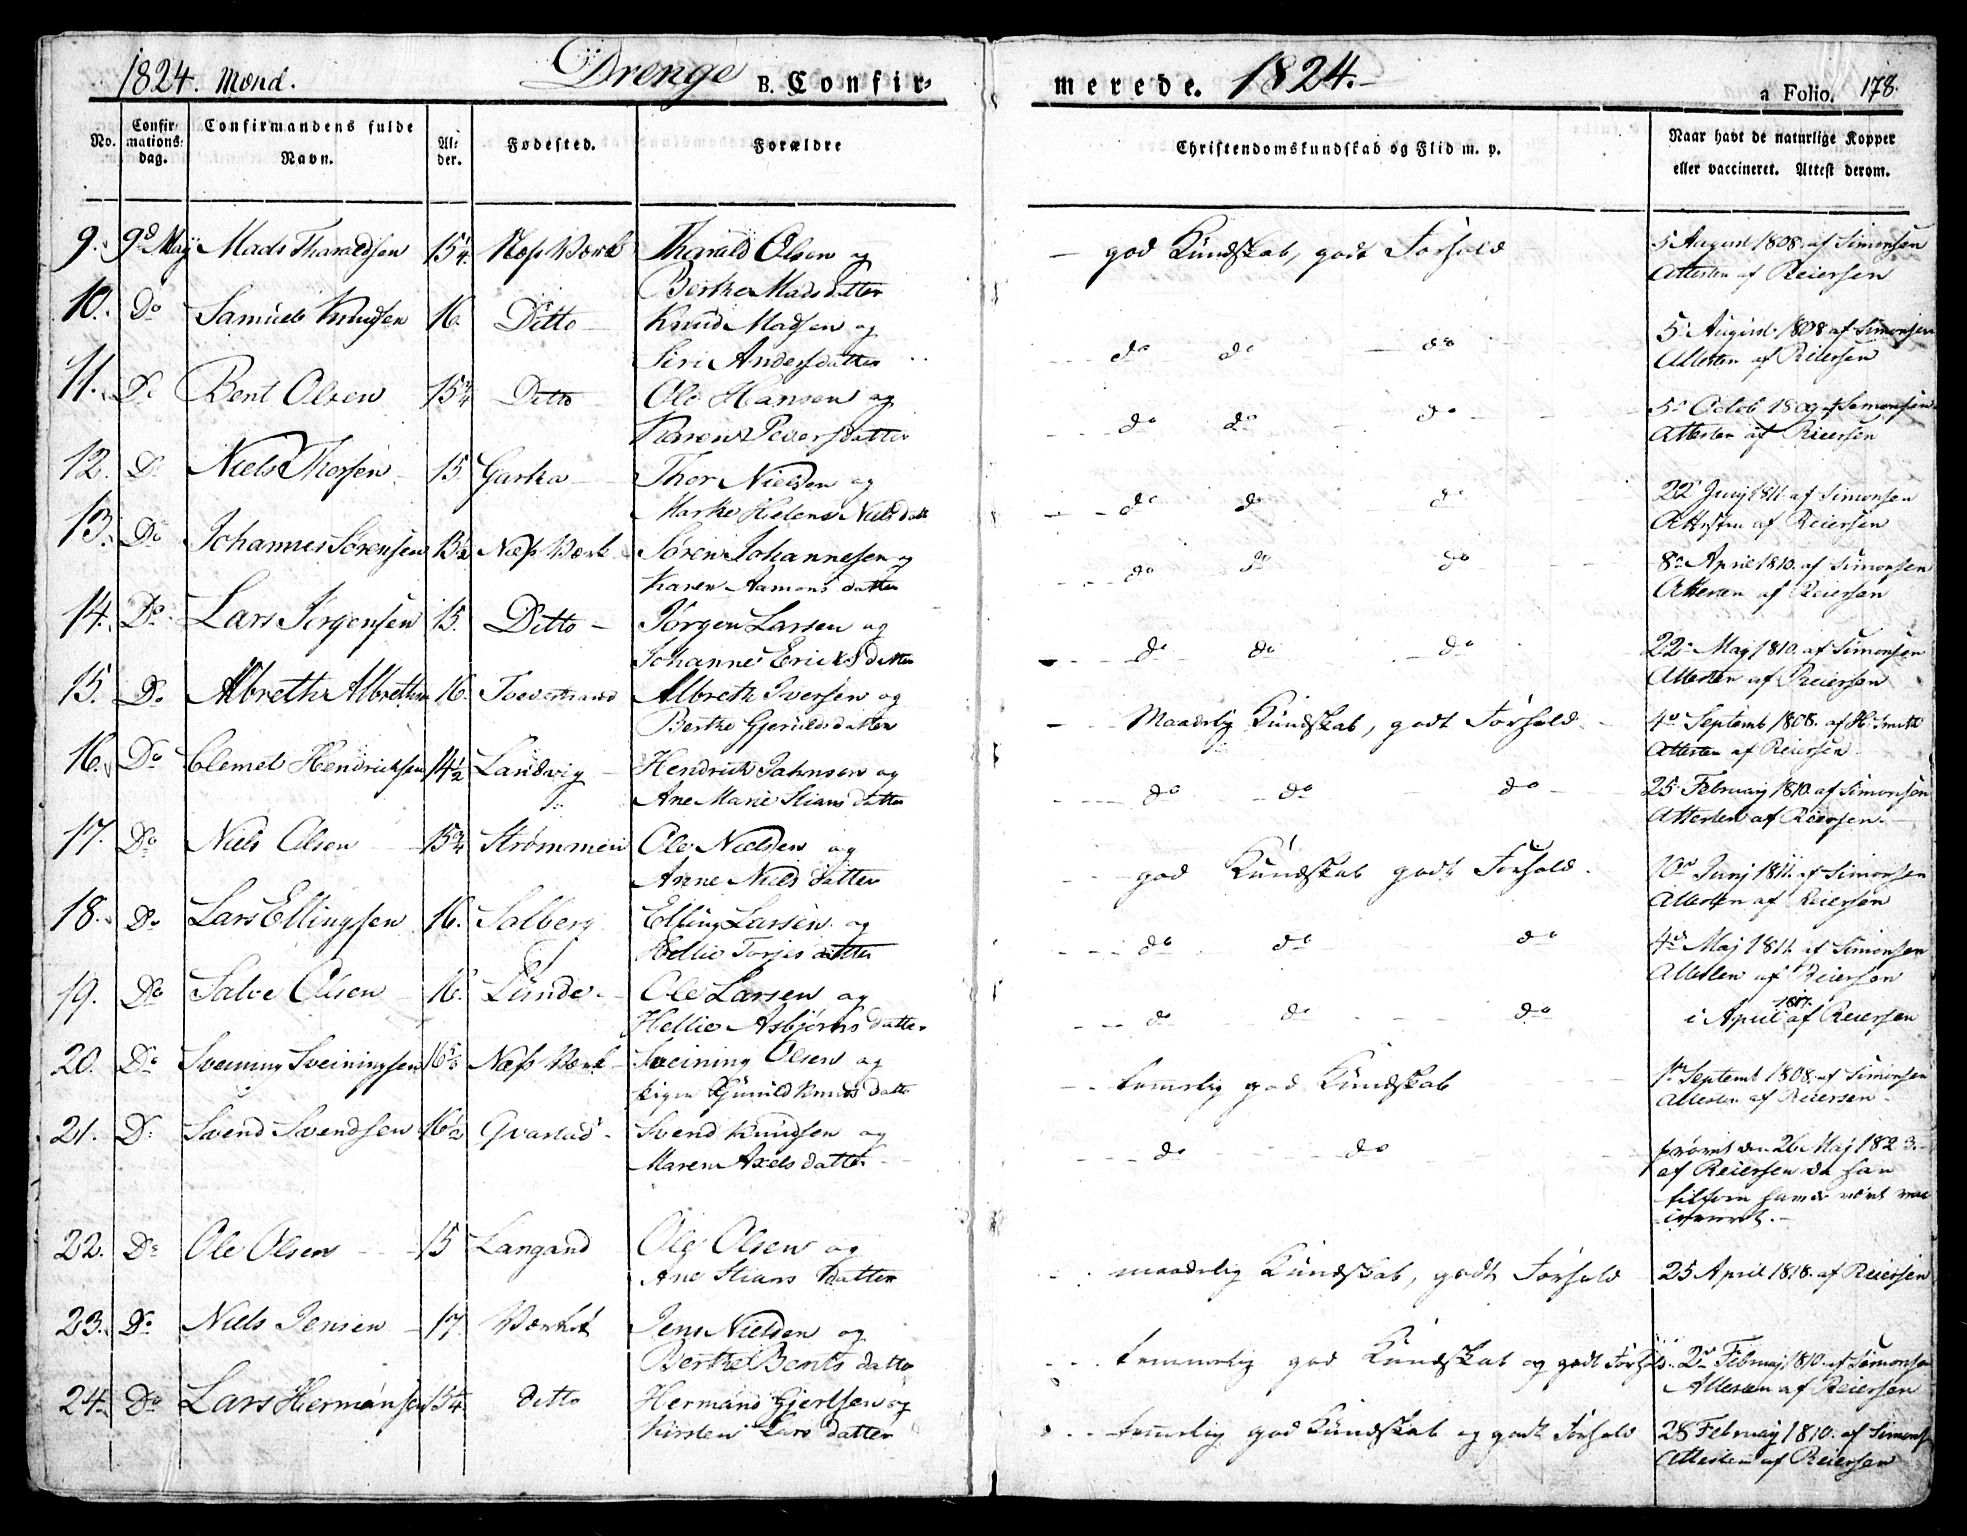 1824. Mænd. Drenge B. Confirmerede. 1824. a Folio. 178.
No. Confirmations-dag. Confirmandens fulde Navn. Alder. Fødested. Forældre Christendomskundskab og Flid m. v. Naar havt de naturlige Kopper eller vaccineret. Attest derom.
9. 9d May Mads Tharaldsen 15 1/4 Næs Værk Tharald Olsen og god Kundskab, godt Forhold 5 August 1808. af Simonsen
Berthe Madsdatter Attesten af Reiersen
10. Do Samuel Knudsen 16. Ditto Knud Madsen og do do do 5 August 1808 af Simonsen
Siri Andersdatter Attesten af Reiersen
11. Do Bent Olsen 15 3/4 Ditto Ole Hansen og do do do 5 Octob 1809 af Simonsen
Karen Pedersdatter Attesten af Reiersen
12. Do Niels Thorsen 15 Garta Thor Nielsen og do do do 22 Junj 1811. af Simonsen
Marthe Helene Nielsdatt Attesten af Reiersen
13. Do Johannes Sørensen 13 1/2 Næs Værk Søren Johannesen og do do do 8 April 1810. af Simonsen
Karen Aamonsdatter Attesten af Reiersen
14. Do Lars Jørgensen 15. Ditto Jørgen Larsen og do do do 22 Maj 1810. af Simonsen
Johanne Ericksdatter Attesten af Reiersen
15. Do Albreth Albrethsen 16. Tvedestrand Albreth Iversen og Maadelig Kundskab, godt Forhold 4 Septemb 1808. af H. Smith
Berthe Gjeruldsdatter Attesten af Reiersen
16. Do Clemet Hendricksen 14 1/2 Landvig Hendrick Jahnsen og do do do 25 Februarj 1810. af Simonsen
Ane Marie Stiansdatter Attesten af Reiersen.
17. Do Niels Olsen 15 3/4 Strømmen Ole Nielsen og god Kundskab godt Forhold. 10 Junj 1811. af Simonsen
Anne Nielsdatter Attesten af Reiersen
18. Do Lars Ellingsen 16. Salberg Elling Larsen og do do do 4d Maj 1811. af Simonsen
Hellie Torjesdatter Attesten af Reiersen
19. Do Salve Olsen 16. Lunde Ole Larsen og do do do i April 1817. af Reiersen
Hellie Asbjørnsdatter
20. Do Svenning Sveiningsen Næs Værk Sveining Olsen og temelig god Kundskab 1 Septemb 1808. af Simonsen
Gunild Knudsdatter Attesten af Reiersen
21. Do Svend Svendsen 16 1/2 Gvastad Svend Knudsen og do do prøvet den 26 Maj 1823.
Maren Axelsdatter af Reiersen da han
tilforn havde vært vac
cineret.
22. Do Ole Olsen 15 Langand Ole Olsen og maadelig Kundskab, godt Forhold 25 April 1818. af Reiersen
Ane Stiansdatter
23. Do Niels Jensen 17 Værket Jens Nielsen og temmelig god Kundskab og godt Forhold. 2 Februarj 1810 af Simonsen
Berthe Bentsdatter Attesten af Reiersen
24. Do Lars Hermansen 15 1/4 ditto Hermand Gjertsen og temelig god Kundskab og godt Forhold 28 Februarj 1810. af Simons
Kirsten Larsdatter Attesten af Reiersen